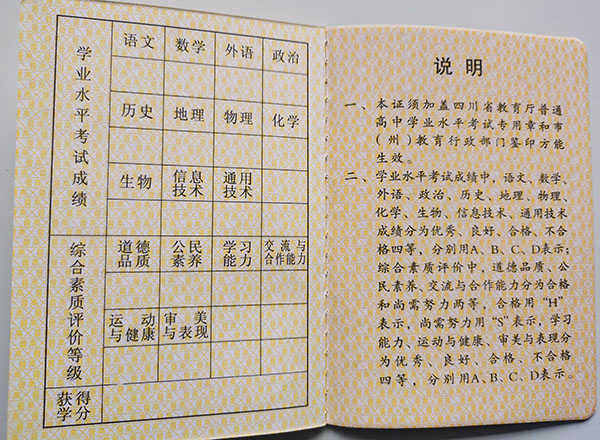 学业水平考试成绩
语文 数学 外语 政治
历史 地理 物理 化学
生物 信息技术 通用技术
综合素质评价等级
道德品质 公民素养 学习能力 交流与合作能力
运动与健康 审美与表现
获得学分
说明
一、本证须加盖四川省教育厅普通
高中学业水平考试专用章和市
(州)教育行政部门鉴印方能
生效。
二、学业水平考试成绩中,语文、数学、
外语、政治、历史、地理、物理、
化学、生物、信息技术、通用技术
成绩分为优秀、良好、合格、不合
格四等,分别用A、B、C、D表示;
综合素质评价中,道德品质、公
民素养、交流与合作能力分为合格
和尚需努力两等,合格用“H”
表示,尚需努力用“S”表示,学习
能力、运动与健康、审美与表现分
为优秀、良好、合格、不合格
四等,分别用A、B、C、D表示。